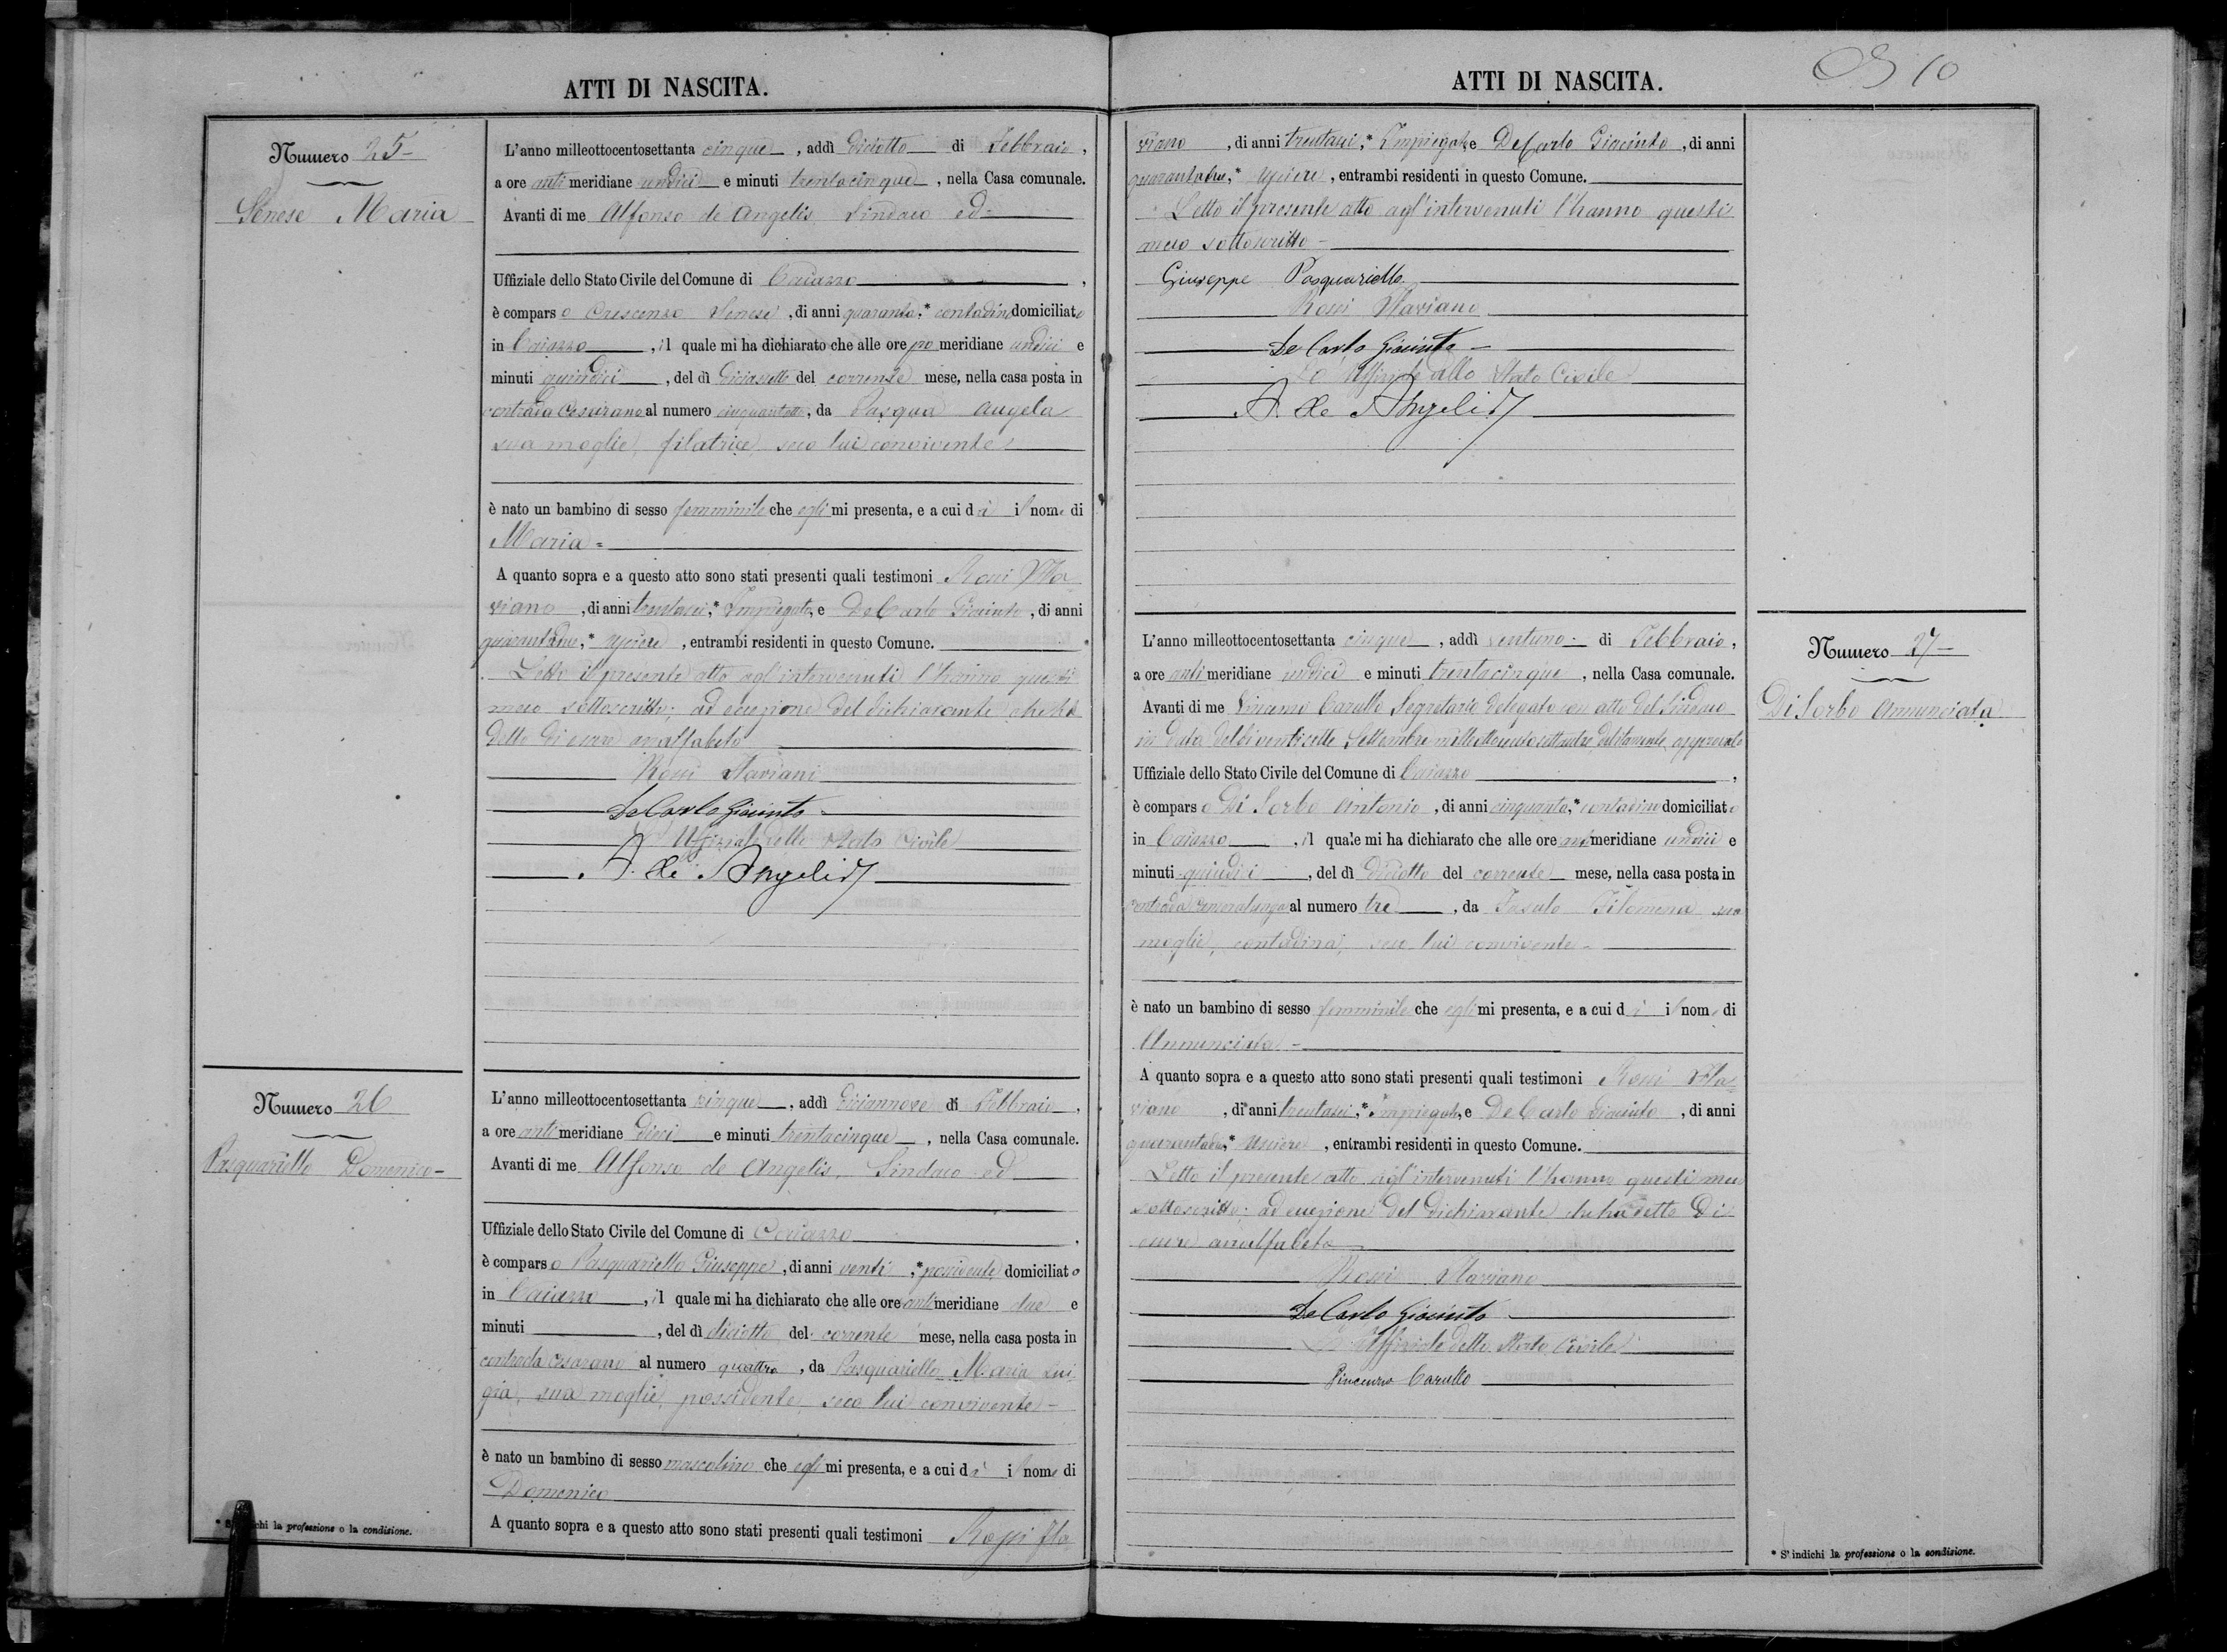 ATTI DI NASCITA.
Numero 25
Senese Maria
L'anno milleottocentosettanta cinque, addì diciotto di Febbraio,
a ore antimeridiane undici e minuti trentacinque, nella Casa comunale.
Avanti di me Alfonso de Angelis Sindaco ed
Uffiziale dello Stato Civile del Comune di Caiazzo,
è comparso Crescenzo Senese, di anni quaranta,* contadino domiciliato
in Caiazzo, il quale mi ha dichiarato che alle ore pomeridiane undici e
minuti quindici, del dì diciassette del corrente mese, nella casa posta in
contrada Cesarano al numero cinquantotto, da Pasqua Angela
sua moglie, filatrice, seco lui convivente
è nato un bambino di sesso femminile che egli mi presenta, e a cui dà il nome di
Maria =
A quanto sopra e a questo atto sono stati presenti quali testimoni Rossi Fla
viano, di anni trentasei,* Impiegato, e De Carlo Giacinto, di anni
quarantadue,* usciere, entrambi residenti in questo Comune.
Letto il presente atto agl'intervenuti l'hanno questi
meco sottoscritto; ad eccezione del dichiarante che ha
detto di essere analfabeto
Rossi Flaviano
De Carlo Giacinto
L'Uffiziale dello Stato Civile
A. De Angelis
Numero 26
Pasquariello Domenico -
L'anno milleottocentosettanta cinque, addì diciannove di Febbraio,
a ore antimeridiane dieci e minuti trentacinque, nella Casa comunale.
Avanti di me Alfonso de Angelis, Sindaco ed
Uffiziale dello Stato Civile del Comune di Caiazzo,
è comparso Pasquariello Giuseppe, di anni venti,* possidente domiciliato
in Caiazzo, il quale mi ha dichiarato che alle ore antimeridiane due e
minuti, del dì diciotto del corrente mese, nella casa posta in
contrada Cesarano al numero quattro, da Pasquariello Maria Lui
gia, sua moglie, possidente, seco lui convivente -
è nato un bambino di sesso mascolino che egli mi presenta, e a cui dà il nome di
Domenico
A quanto sopra e a questo atto sono stati presenti quali testimoni Rossi Fla
* S'indichi la professione o la condizione.
ATTI DI NASCITA.
10
viano, di anni trentasei,* Impiegato, e De Carlo Giacinto, di anni
quarantadue,* usciere, entrambi residenti in questo Comune.
Letto il presente atto agl'intervenuti l'hanno questi
meco sottoscritto -
Giuseppe Pasquariello
Rossi Flaviano
De Carlo Giacinto -
Lo Uffiziale allo Stato Civile
A. De Angelis
Numero 27
Di Sorbo Annunciata
L'anno milleottocentosettanta cinque, addì ventuno di Febbraio,
a ore antimeridiane undici e minuti trentacinque, nella Casa comunale.
Avanti di me Vincenzo Carullo Segretario delegato con atto del Sindaco
in data del dì ventisette Settembre debitamente approvato
Uffiziale dello Stato Civile del Comune di Caiazzo,
è comparso Di Sorbo Antonio, di anni cinquanta,* contadino domiciliato
in Caiazzo, il quale mi ha dichiarato che alle ore antimeridiane undici e
minuti quindici, del dì diciotto del corrente mese, nella casa posta in
contrada al numero tre, da Insulo Filomena sua
moglie, contadina, seco lui convivente -
è nato un bambino di sesso femminile che egli mi presenta, e a cui dà il nome di
Annunciata -
A quanto sopra e a questo atto sono stati presenti quali testimoni Rossi Fla=
viano, di anni trentasei,* Impiegato, e De Carlo Giacinto, di anni
quarantadue,* usciere, entrambi residenti in questo Comune.
Letto il presente atto agl'intervenuti l'hanno questi meco
sottoscritto; ad eccezione del dichiarante che ha detto di
essere analfabeto
Rossi Flaviano
De Carlo Giacinto
L'Uffiziale dello Stato Civile
Vincenzo Carullo
* S'indichi la professione o la condizione.